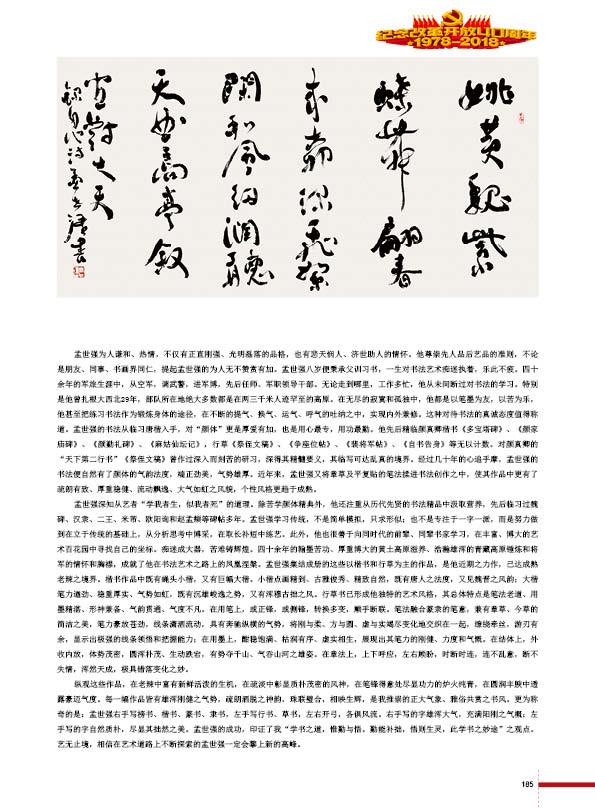 纪念改革开放40周年
1978-2018
姚黄魏紫
蝶舞翩春
天
宜对大天
孟世强书
孟世强为人谦和、热情，不仅有正直刚强、光明磊落的品格，也有悲天悯人、济世助人的情怀。他尊崇先人品后艺品的准则，不论
是朋友、同事、书画界同仁，提起孟世强的为人无不赞赏有加。孟世强八岁便秉父训习书，一发对书法艺术痴迷执着，乐此不疲。四十
余年的军旅生涯中，从空军，调武警，进军博，先后任师、军职领导干部。无论走到哪里，工作多忙，他从未间断过对书法的学习。特别
是他曾扎根大西北29年，部队所在地绝大多数都是在两三千米人迹罕至的高原。在无尽的寂寞和孤独中，他都是以笔墨为友，以苦为乐，
他甚至把练习书法作为锻炼身体的途径，在不断的提气、换气、运气、呼气的吐纳之中，实现内外兼修。这种对待书法的真诚态度值得称
道。孟世强的书法从临习唐楷入手，对“颜体”更是厚爱有加，也是用心最专，用功最勤。他先后精临颜真卿楷书《多宝塔碑》、《颜家
庙碑》、《颜勤礼碑》、《麻姑仙坛记》，行草《祭侄文稿》、《争座位帖》、《裴将军帖》、《自书告身》等无以计数。对颜真卿的
“天下第二行书”《祭侄文稿》曾作过深入而刻苦的研习，深得其精髓要义，其临写可达乱真的境界。经过几十年的心追手摩，孟世强的
书法便自然有了颜体的气韵法度，端正劲美，气势雄厚。近年来，孟世强又将章草及平复贴的笔法揉进书法创作之中，使其作品中更有了
疏朗有致、厚重稳健、流动飘逸、大气如虹之风貌，个性风格更趋于成熟。
孟世强深知从艺者“学我者生，似我者死”的道理。除苦学颜体精典外，他还注重从历代先贤的书法精品中汲取营养，先后临习过魏
碑、汉隶、二王、米芾、欧阳询和赵孟頫等碑帖多年。孟世强学习传统，不是简单模拟，只求形似；也不是专注于一字一派，而是努力做
到在立于传统的基础上，从分析思考中博采，在取长补短中练艺。此外，他也很善于向同时代的前辈、同辈书家学习，在丰富、博大的艺
术百花园中寻找自己的坐标。痴迷成大器，苦难铸辉煌。四十余年的翰墨苦功、厚重博大的黄土高原滋养、浩瀚雄浑的青藏高原锤炼和将
军的情怀和胸襟，成就了他在书法艺术之路上的凤凰涅槃。孟世强集结成册的这些以楷书和行草为主的作品，是他近期之力作，已达成熟
老辣之境界。楷书作品中既有蝇头小楷，又有巨幅大楷。小楷点画精到、古雅俊秀、精致自然，既有唐人之法度，又见魏晋之风韵；大楷
笔力遒劲、稳重厚实、气势如虹，既有沉雄峻逸之势，又有浑穆古拙之风。行草书已形成他独特的艺术风格，其总体特点是笔法老道、用
墨精湛、形神兼备、气韵贯通、气度不凡。在用笔上，或正锋，或侧锋，转换多变，顺手断联。笔法融合篆隶的笔意，兼有章草、今草的
简洁之美，笔力豪放苍劲，线条潇洒流动，具有奔驰纵横的气势，将刚与柔、方与圆、虚与实竭尽变化地交织在一起，缠绕牵丝，游刃有
余，显示出极强的线条领悟和把握能力；在用墨上，酣稳饱满、枯润有序、虚实相生，展现出其笔力的刚健、力度和气慨。在结体上，外
收内放，体势茂密，圆浑朴茂、生动跌宕，有势夺千山、气吞山河之雄姿。在章法上，上下呼应，左右顾盼，时断时连，连不乱意，断不
失情，浑然天成，极具错落变化之妙。
纵观这些作品，在老辣中富有新鲜活泼的生机，在疏淡中彰显质朴茂密的风神，在笔锋得意处尽显功力的炉火纯青，在圆润丰腴中透
露豪迈气度。每一幅作品皆有雄浑刚健之气势，疏朗洒脱之神韵，珠联璧合，相映生辉，是我推崇的正大气象、雅俗共赏之书风。更为称
奇的是：孟世强右手写榜书、楷书、篆书、隶书，左手写行书、草书，左右开弓，各俱风流。右手写的字雄浑大气，充满阳刚之气概；左
手写的字自然质朴，尽显其拙然之美。孟世强的成功，印证了我“学书之道，惟勤与悟，勤能补拙，悟则生灵，此学书之妙途”之观点。
艺无止境，相信在艺术道路上不断探索的孟世强一定会攀上新的高峰。
185